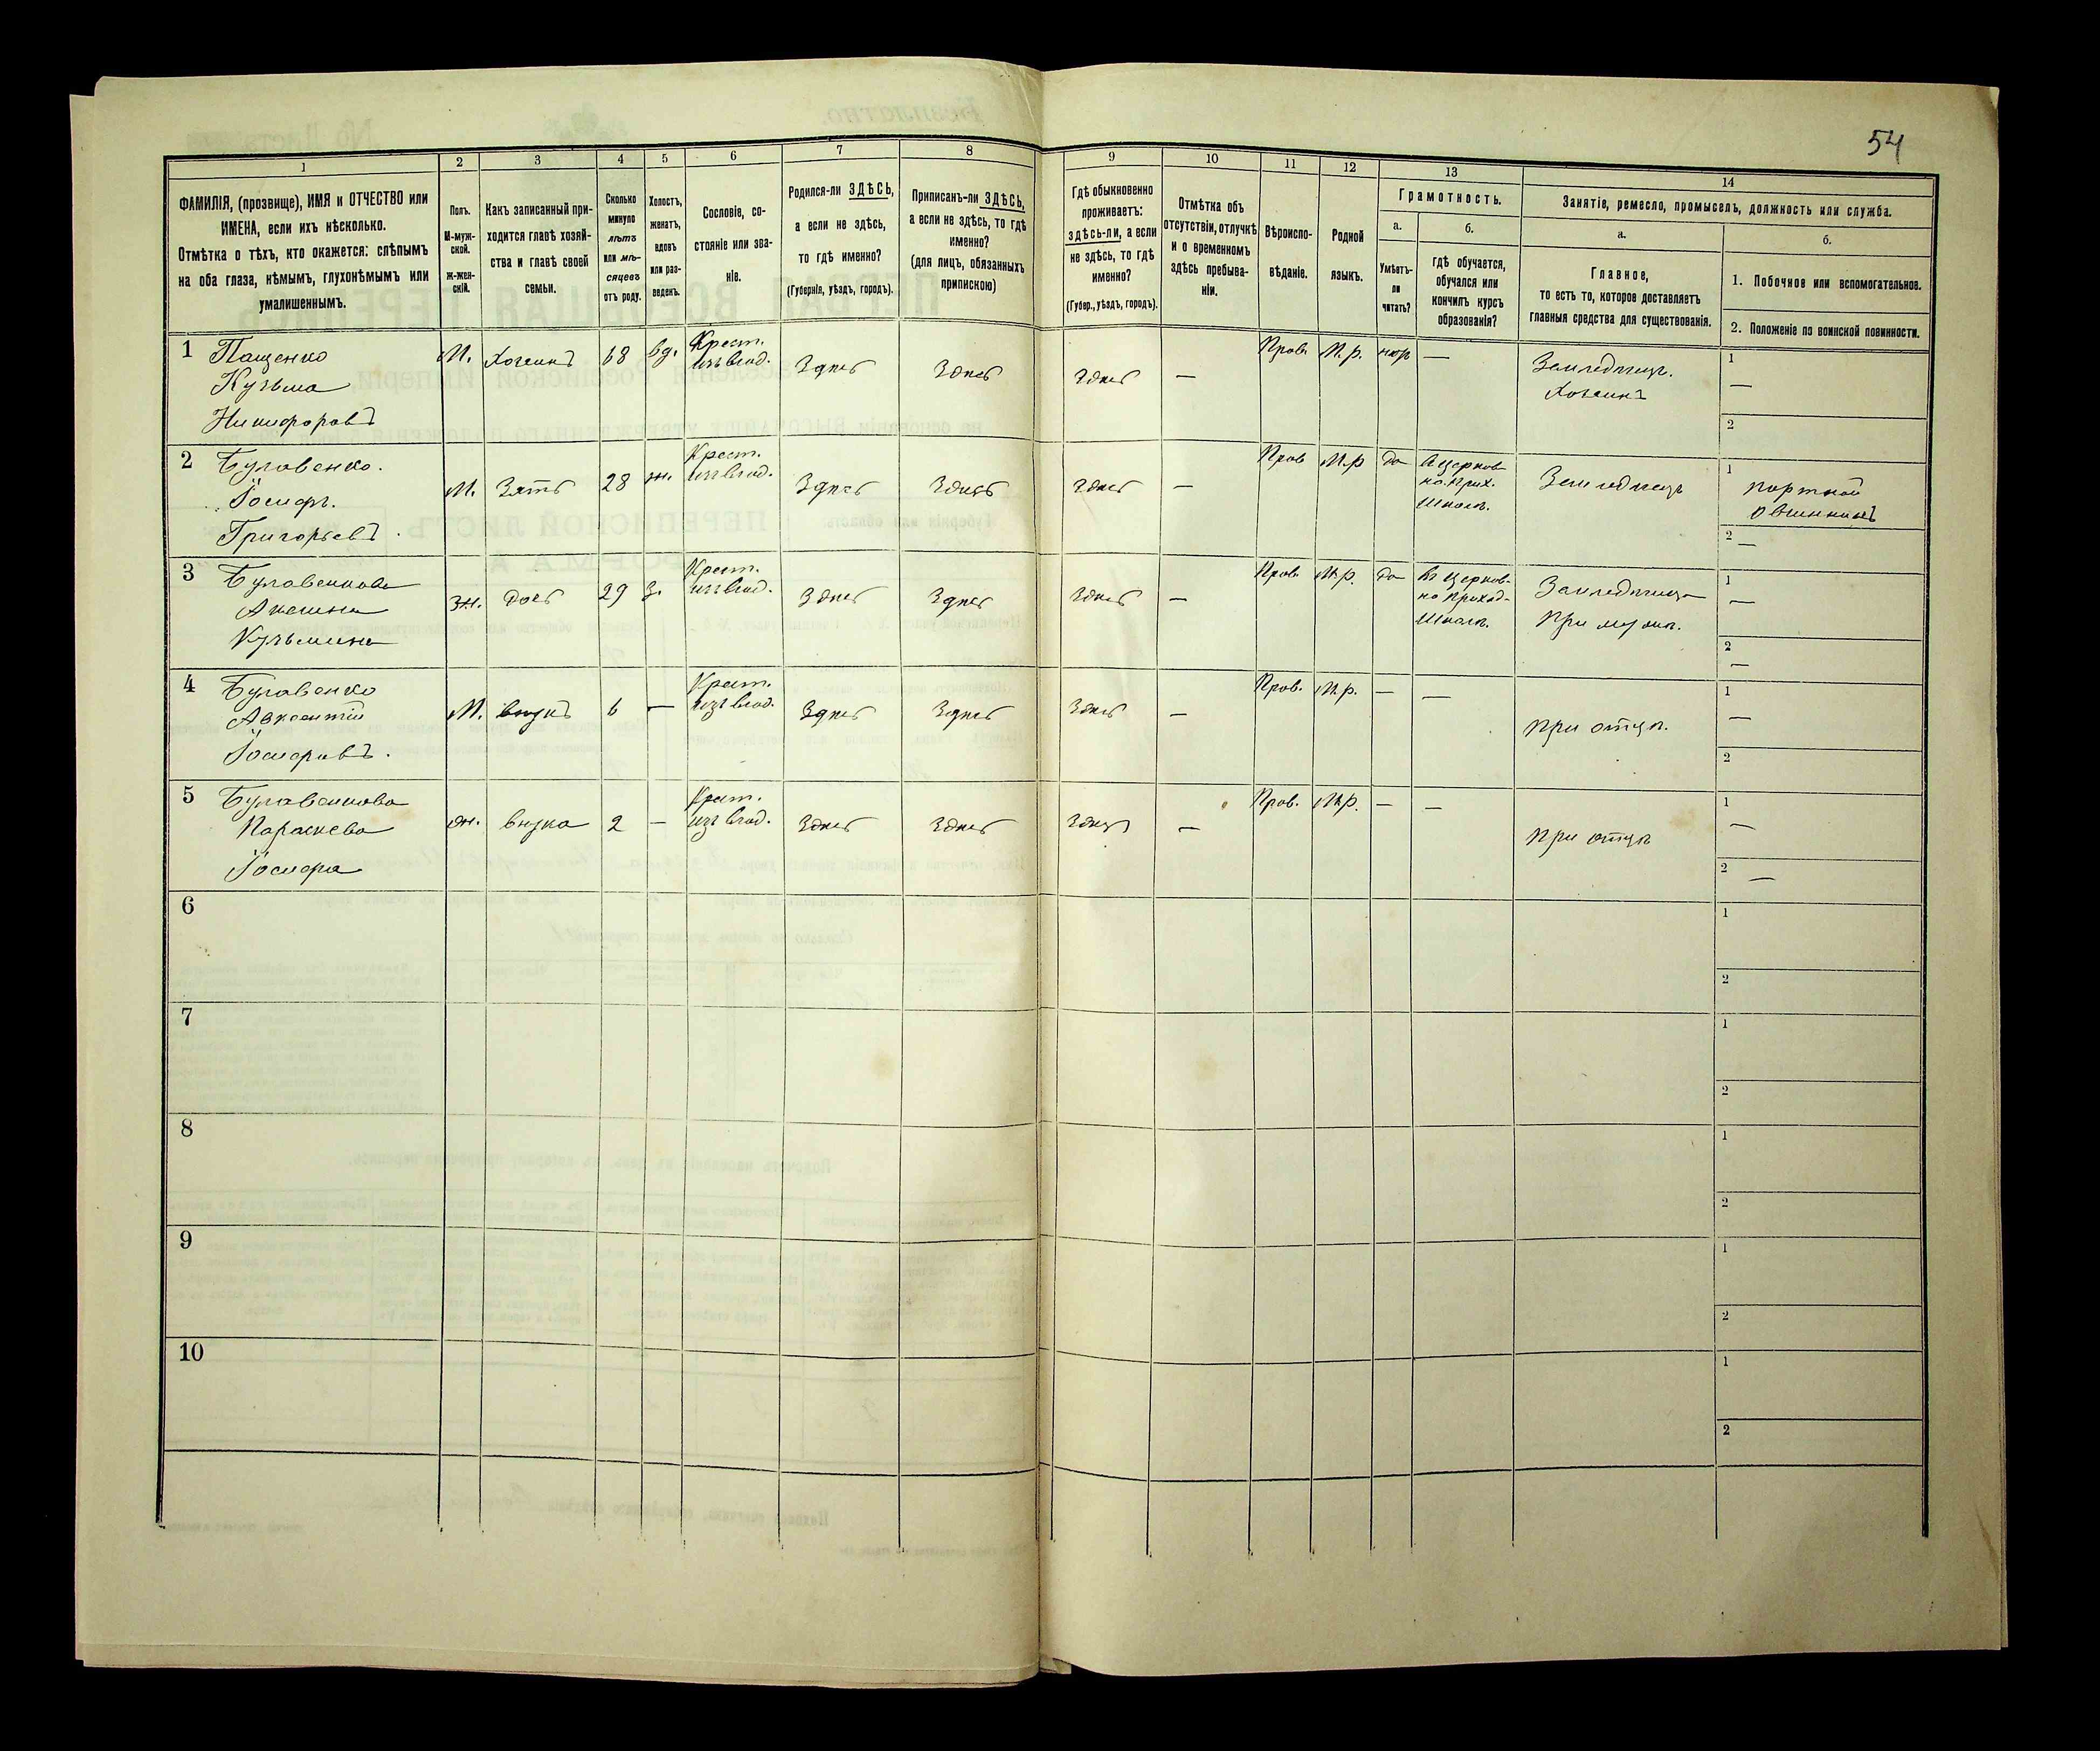 54
1
2
3
4
5
6
7
8
9
10
11
12
13
14
ФАМИЛІЯ, (прозвище), ИМЯ и ОТЧЕСТВО или
ИМЕНА, если ихъ нѣсколько.
Отмѣтка о тѣхъ, кто окажется: слѣпымъ
на оба глаза, нѣмымъ, глухонѣмымъ или
умалишеннымъ.
Полъ.
М-муж-
ской.
ж-жен-
скій.
Какъ записанный при-
ходится главѣ хозяй-
ства и главѣ своей
семьи.
Сколько
минуло
лѣтъ
или мѣ-
сяцевъ
отъ роду.
Холостъ,
женатъ,
вдовъ
или раз-
веденъ.
Сословіе, со-
стояніе или зва-
ніе.
Родился-ли ЗДѢСЬ,
а если не здѣсь,
то гдѣ именно?
(Губернія, уѣздъ, городъ).
Приписанъ-ли ЗДѢСЬ,
а если не здѣсь, то гдѣ
именно?
(для лицъ, обязанныхъ
припискою)
Гдѣ обыкновенно
проживаетъ:
здѣсь-ли, а если
не здѣсь, то гдѣ
именно?
(Губер., уѣздъ, городъ).
Отмѣтка объ
отсутствіи, отлучкѣ
и о временномъ
здѣсь пребыва-
ніи.
Вѣроиспо-
вѣданіе.
Родной
языкъ.
Грамотность.
а.
Умѣетъ-
ли
читать?
б.
гдѣ обучается,
обучался или
кончилъ курсъ
образованія?
Занятіе, ремесло, промыселъ, должность или служба.
а.
Главное,
то есть то, которое доставляетъ
главныя средства для существованія.
б.
1. Побочное или вспомогательное.
2. Положеніе по воинской повинности.
1 Пащенко
Кузьма
Никифоровъ
М. Хозяинъ 68 вд. Крест.
изъ влад.
Здѣсь Здѣсь Здѣсь — Прав. М.р. нѣтъ —
Земледѣлецъ.
Хозяинъ
1
—
2
2 Булавенко.
Іосифъ.
Григорьевъ.
М. Зять 28 ж. Крест.
изъ влад.
Здѣсь Здѣсь Здѣсь — Прав М.р да Въ церков
но.Прих.
Школѣ.
Земледѣлецъ
1
портной
овчинникъ
2 —
3 Булавенкова
Акилина
Кузьмина
ж. дочь 29 з. Крест.
изъ влад.
Здѣсь Здѣсь Здѣсь — Прав. М.р. да Въ церков-
но приход-
Школѣ.
Земледѣлица
При мужѣ.
1
—
2
—
4 Булавенко
Авксентій
Іосифовъ.
М. внукъ 6 — Крест.
изъ влад.
Здѣсь Здѣсь Здѣсь — Прав. М.р. — —
При отцѣ.
1
—
2
5 Булавенкова
Параскева
Іосифа
ж. внука 2 — Крест.
изъ влад.
Здѣсь Здѣсь Здѣсь — Прав. М.р. — —
При отцѣ
1
—
2
—
6
1
2
7
1
2
8
1
2
9
1
2
10
1
2